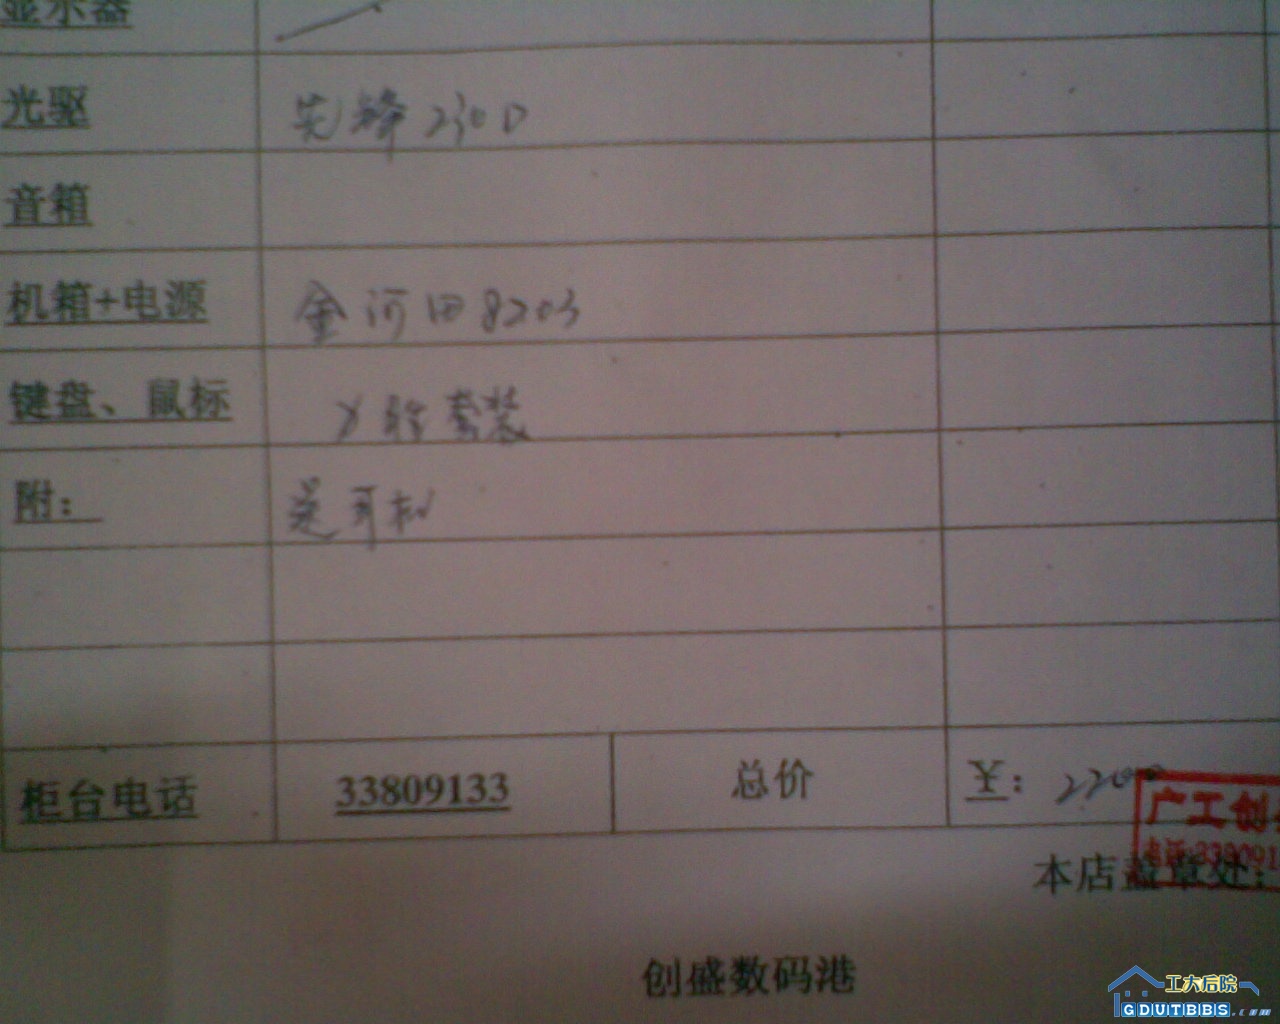 显示器
光驱 先锋230D
音箱
机箱+电源 金河田8203
键盘、鼠标 套装
附： 送耳机
柜台电话 33809133 总价 ¥： 2200
广工创
电话:338091
本店盖章处:
创盛数码港
工大后院
GDUTBBS.com